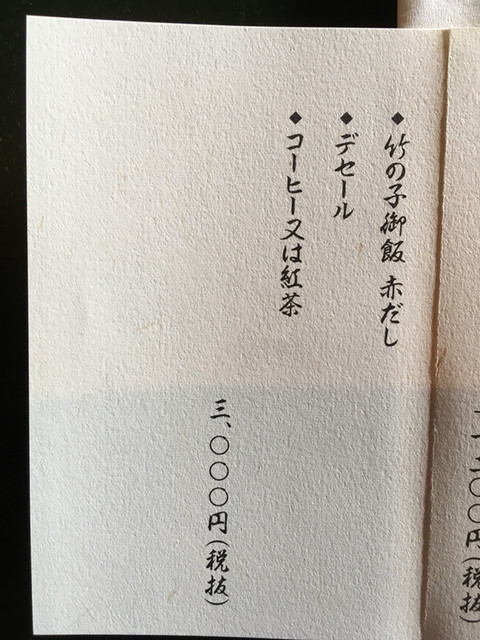 ◆竹の子御飯 赤だし
◆デセール
◆コーヒー又は紅茶
三、〇〇〇円（税抜）
二〇〇円（税抜）